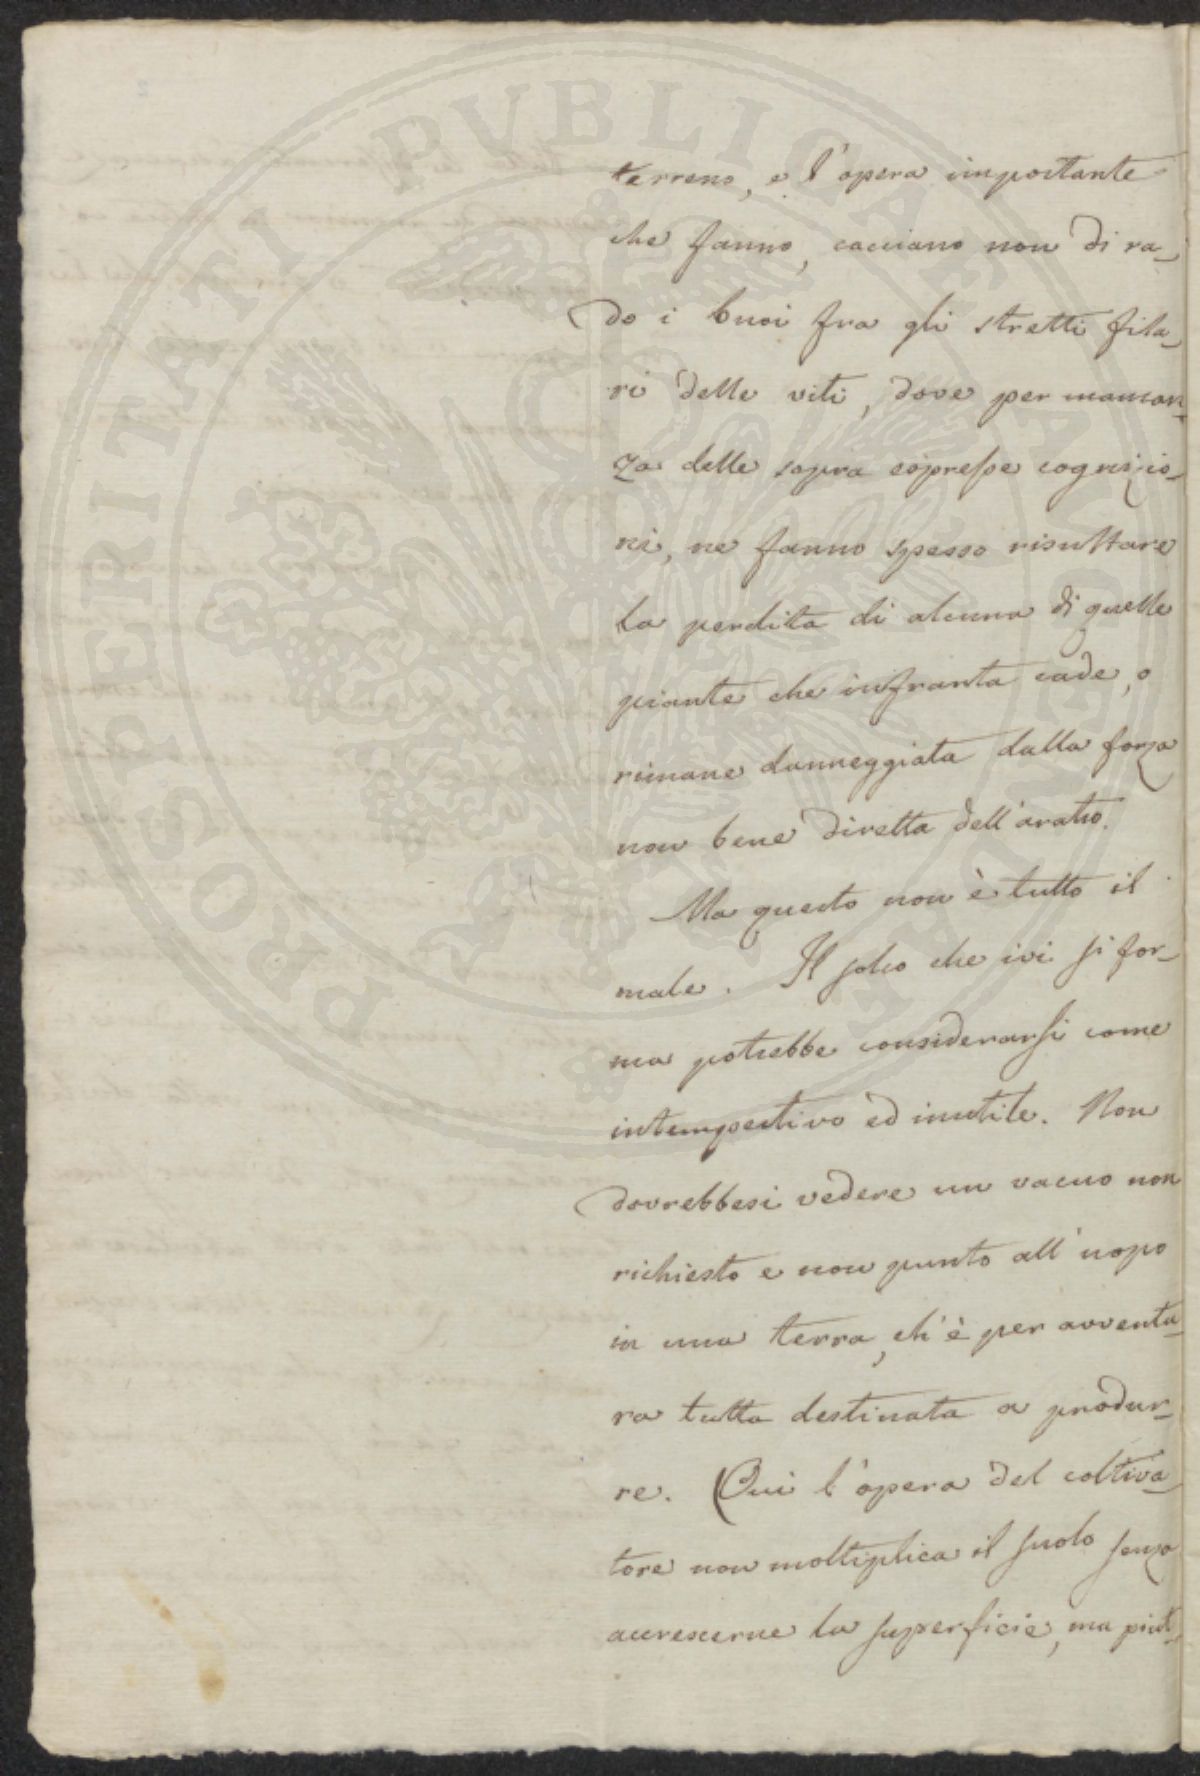 PROSPERITATI PUBLICAE AUGENDAE
terreno, e l'opera importante
che fanno, cacciano non di ra-
do i buoi fra gli stretti fila-
ri delle viti, dove per mancan-
za delle sopra espresse cognizio-
ni, ne fanno spesso risultare
la perdita di alcuna di quelle
piante che infranta cade, o
rimane danneggiata dalla forza
non bene diretta dell'aratro.
Ma questo non è tutto il
male. Il solco che ivi si for-
ma potrebbe considerarsi come
intempestivo ed inutile. Non
dovrebbesi vedere un vacuo non
richiesto e non punto all'uopo
in una terra, ch'è per avventu-
ra tutta destinata a produr-
re. Qui l'opera del coltiva-
tore non moltiplica il suolo senza
accrescerne la superficie, ma piut-